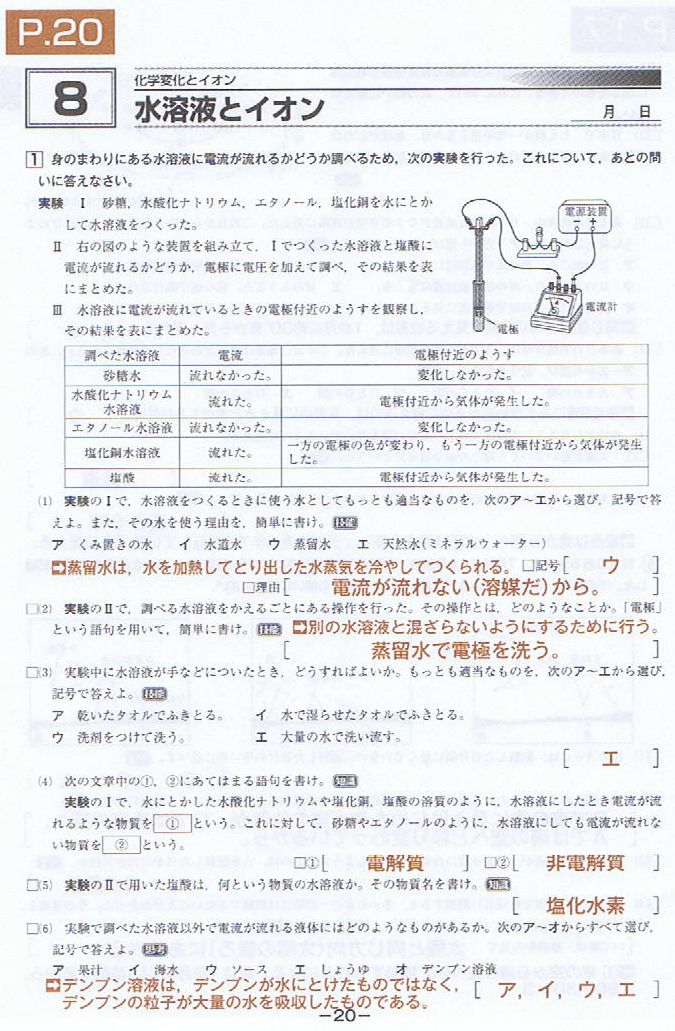 P.20
8
化学変化とイオン
水溶液とイオン
月 日
1 身のまわりにある水溶液に電流が流れるかどうか調べるため，次の実験を行った。これについて，あとの問
いに答えなさい。
実験 Ⅰ 砂糖，水酸化ナトリウム，エタノール，塩化銅を水にとか
して水溶液をつくった。
Ⅱ 右の図のような装置を組み立て，Ⅰでつくった水溶液と塩酸に
電流が流れるかどうか，電極に電圧を加えて調べ，その結果を表
にまとめた。
Ⅲ 水溶液に電流が流れているときの電極付近のようすを観察し，
その結果を表にまとめた。
電源装置
− ＋
電流計
電極
調べた水溶液 電流 電極付近のようす
砂糖水 流れなかった。 変化しなかった。
水酸化ナトリウム
水溶液 流れた。 電極付近から気体が発生した。
エタノール水溶液 流れなかった。 変化しなかった。
塩化銅水溶液 流れた。 一方の電極の色が変わり，もう一方の電極付近から気体が発生
した。
塩酸 流れた。 電極付近から気体が発生した。
(1) 実験のⅠで，水溶液をつくるときに使う水としてもっとも適当なものを，次のア〜エから選び，記号で答
えよ。また，その水を使う理由を，簡単に書け。技能
ア くみ置きの水 イ 水道水 ウ 蒸留水 エ 天然水(ミネラルウォーター)
➡蒸留水は，水を加熱してとり出した水蒸気を冷やしてつくられる。 □記号[ ウ ]
□理由[ 電流が流れない(溶媒だ)から。 ]
□(2) 実験のⅡで，調べる水溶液をかえるごとにある操作を行った。その操作とは，どのようなことか。「電極」
という語句を用いて，簡単に書け。技能 ➡別の水溶液と混ざらないようにするために行う。
[ 蒸留水で電極を洗う。 ]
□(3) 実験中に水溶液が手などについたとき，どうすればよいか。もっとも適当なものを，次のア〜エから選び，
記号で答えよ。技能
ア 乾いたタオルでふきとる。 イ 水で湿らせたタオルでふきとる。
ウ 洗剤をつけて洗う。 エ 大量の水で洗い流す。
[ エ ]
(4) 次の文章中の①，②にあてはまる語句を書け。知識
実験のⅠで，水にとかした水酸化ナトリウムや塩化銅，塩酸の溶質のように，水溶液にしたとき電流が流
れるような物質を ① という。これに対して，砂糖やエタノールのように，水溶液にしても電流が流れな
い物質を ② という。
□①[ 電解質 ] □②[ 非電解質 ]
□(5) 実験のⅡで用いた塩酸は，何という物質の水溶液か。その物質名を書け。知識
[ 塩化水素 ]
□(6) 実験で調べた水溶液以外で電流が流れる液体にはどのようなものがあるか。次のア〜オからすべて選び，
記号で答えよ。思考
ア 果汁 イ 海水 ウ ソース エ しょうゆ オ デンプン溶液
➡デンプン溶液は，デンプンが水にとけたものではなく， [ ア，イ，ウ，エ ]
デンプンの粒子が大量の水を吸収したものである。
−20−